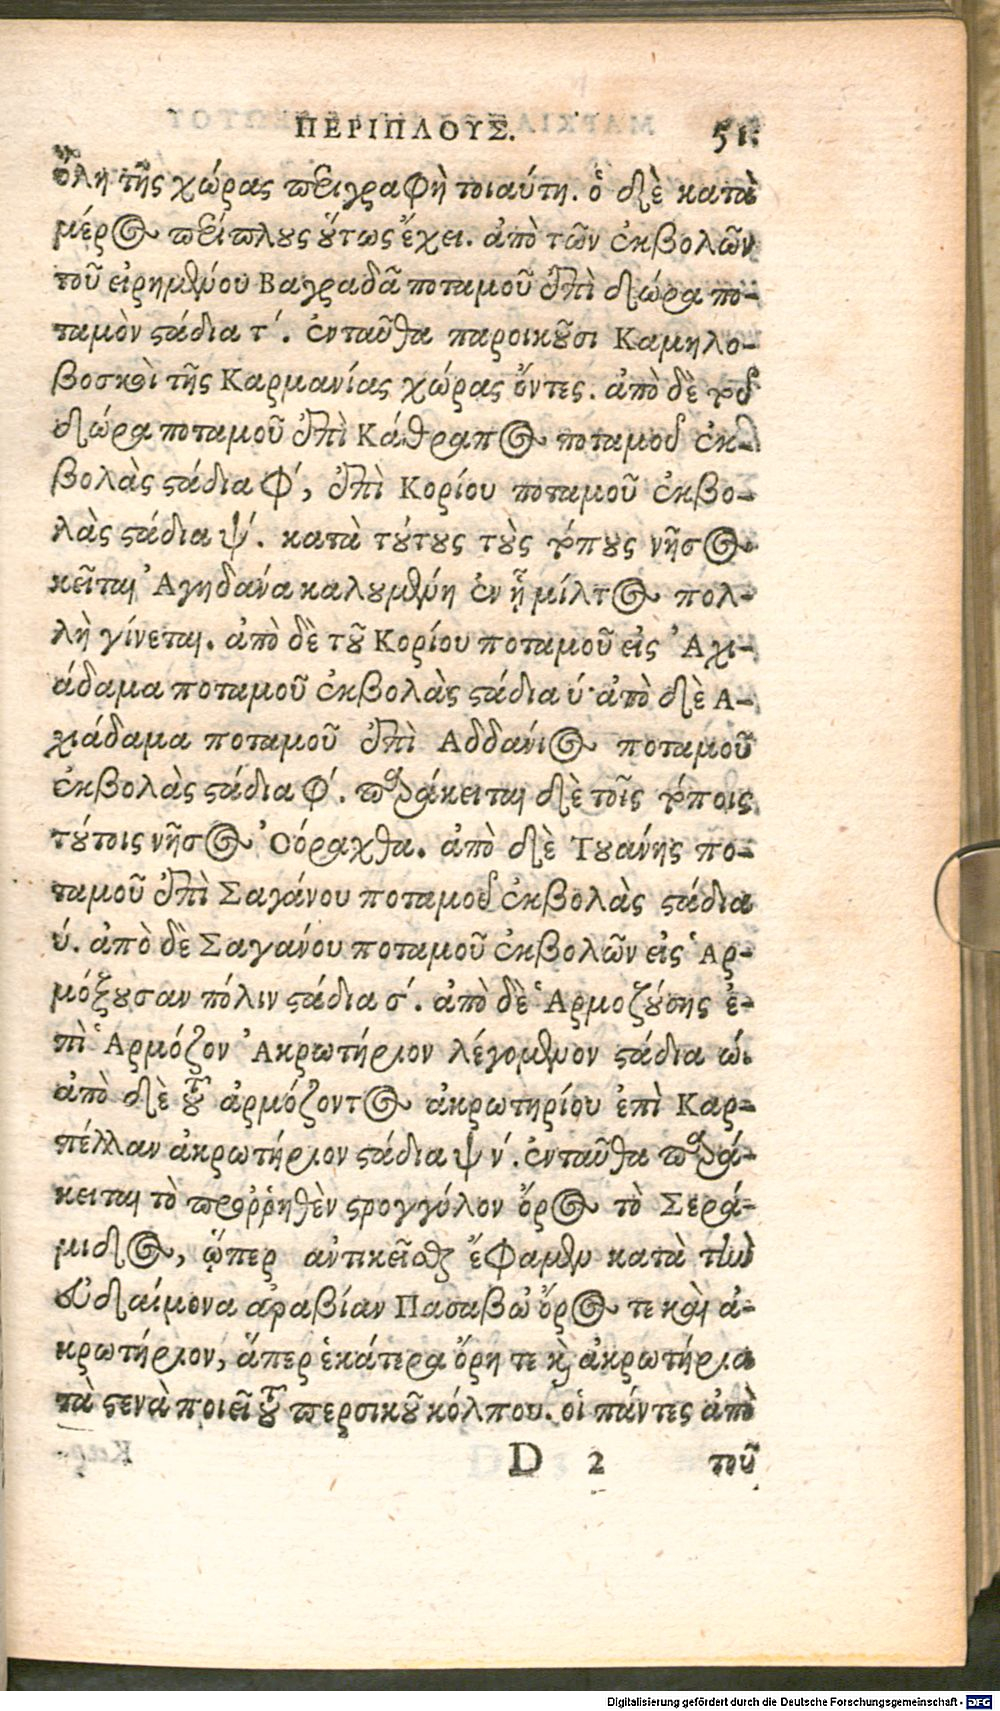 ΠΕΡΙΠΛΟΥΣ. 51.
ὅλη τῆς χώρας περιγραφὴ τοιαύτη. ὁ δὲ κατὰ
μέρος περίπλους οὕτως ἔχει. ἀπὸ τῶν ἐκβολῶν
τοῦ εἰρημένου Βαγραδᾶ ποταμοῦ ἐπὶ δώρα πο-
ταμὸν στάδια τ´. ἐνταῦθα παροικοῦσι Καμηλο-
βοσκοὶ τῆς Καρμανίας χώρας ὄντες. ἀπὸ δὲ τοῦ
δώρα ποταμοῦ ἐπὶ Κάθραπος ποταμοῦ ἐκ-
βολὰς στάδια φ´, ἐπὶ Κορίου ποταμοῦ ἐκβο-
λὰς στάδια ψ´. κατὰ τούτους τοὺς τόπους νῆσος
κεῖται Ἀγηδάνα καλουμένη ἐν ᾗ μίλτος πολ-
λὴ γίνεται. ἀπὸ δὲ τοῦ Κορίου ποταμοῦ εἰς Ἀχι-
άδαμα ποταμοῦ ἐκβολὰς στάδια υ´ ἀπὸ δὲ Α-
χιάδαμα ποταμοῦ ἐπὶ Αδδάνιος ποταμοῦ
ἐκβολὰς στάδια φ´. παράκειται δὲ τοῖς τόποις
τούτοις νῆσος Ὀόραχθα. ἀπὸ δὲ Τουάνης πο-
ταμοῦ ἐπὶ Σαγάνου ποταμοῦ ἐκβολὰς στάδια
υ´. ἀπὸ δὲ Σαγάνου ποταμοῦ ἐκβολῶν εἰς Ἁρ-
μόζουσαν πόλιν στάδια σ´. ἀπὸ δὲ Ἁρμοζούσης ἐ-
πὶ Ἁρμόζον Ἀκρωτήριον λέγομενον στάδια ώ.
ἀπὸ δὲ τοῦ ἁρμόζοντος ἀκρωτηρίου ἐπὶ Καρ-
πέλλαν ἀκρωτήριον στάδια ψν´. ἐνταῦθα παρά-
κειται τὸ προῤῥηθὲν στρογγύλον ὄρος τὸ Σερά-
μιδος, ᾧπερ ἀντικεῖσθαι ἔφαμεν κατὰ τὴν
εὐδαίμονα ἀραβίαν Πασαβὼ ὄρος τε καὶ ἀ-
κρωτήριον, ἅπερ ἑκάτερα ὄρη τε καὶ ἀκρωτήρια
τὰ στενὰ ποιεῖ τοῦ περσικοῦ κόλπου. οἱ πάντες ἀπὸ
D 2 τοῦ
Digitalisierung gefördert durch die Deutsche Forschungsgemeinschaft - DFG